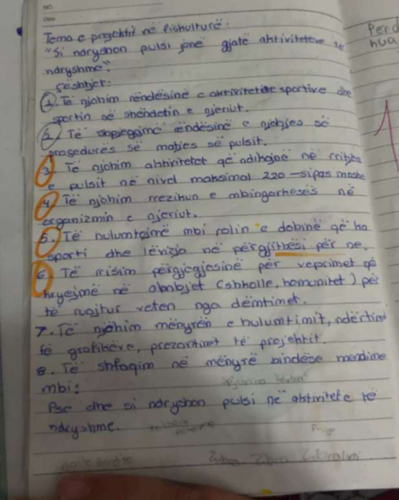 Tema e projektit në fiskulturë:
"Si ndryshon pulsi jonë gjatë aktiviteteve të
ndryshme".
Çështjet:
1. Të njohim rëndësinë e aktivitetite sportive dhe
sportin së shëndetin e njeriut.
2. Të shpjegojmë rëndësinë e njohjes së
procedurës së matjes së pulsit.
3. Të njohim aktivitetet që ndihojnë në rritjen
e pulsit në nivel maksimal 220 - sipas moshe
4. Të njohim rrezikun e mbingarkesës në
organizmin e njeriut.
5. Të hulumtojmë mbi rolin e dobinë që ka
sporti dhe lëvizja në përgjithësi për ne.
6. Të rrisim përgjegjësinë për veprimet që
kryejmë në
të ruajtur veten nga dëmtimet.
7. Të njohim mënyrën e hulumtimit, ndërtimi
të grafikëve, prezantimet të projektit.
8. Të shfaqim në mënyrë bindëse mendime
mbi:
Pse dhe si ndryshon pulsi në aktivitete të
ndryshme.
Përd
hua